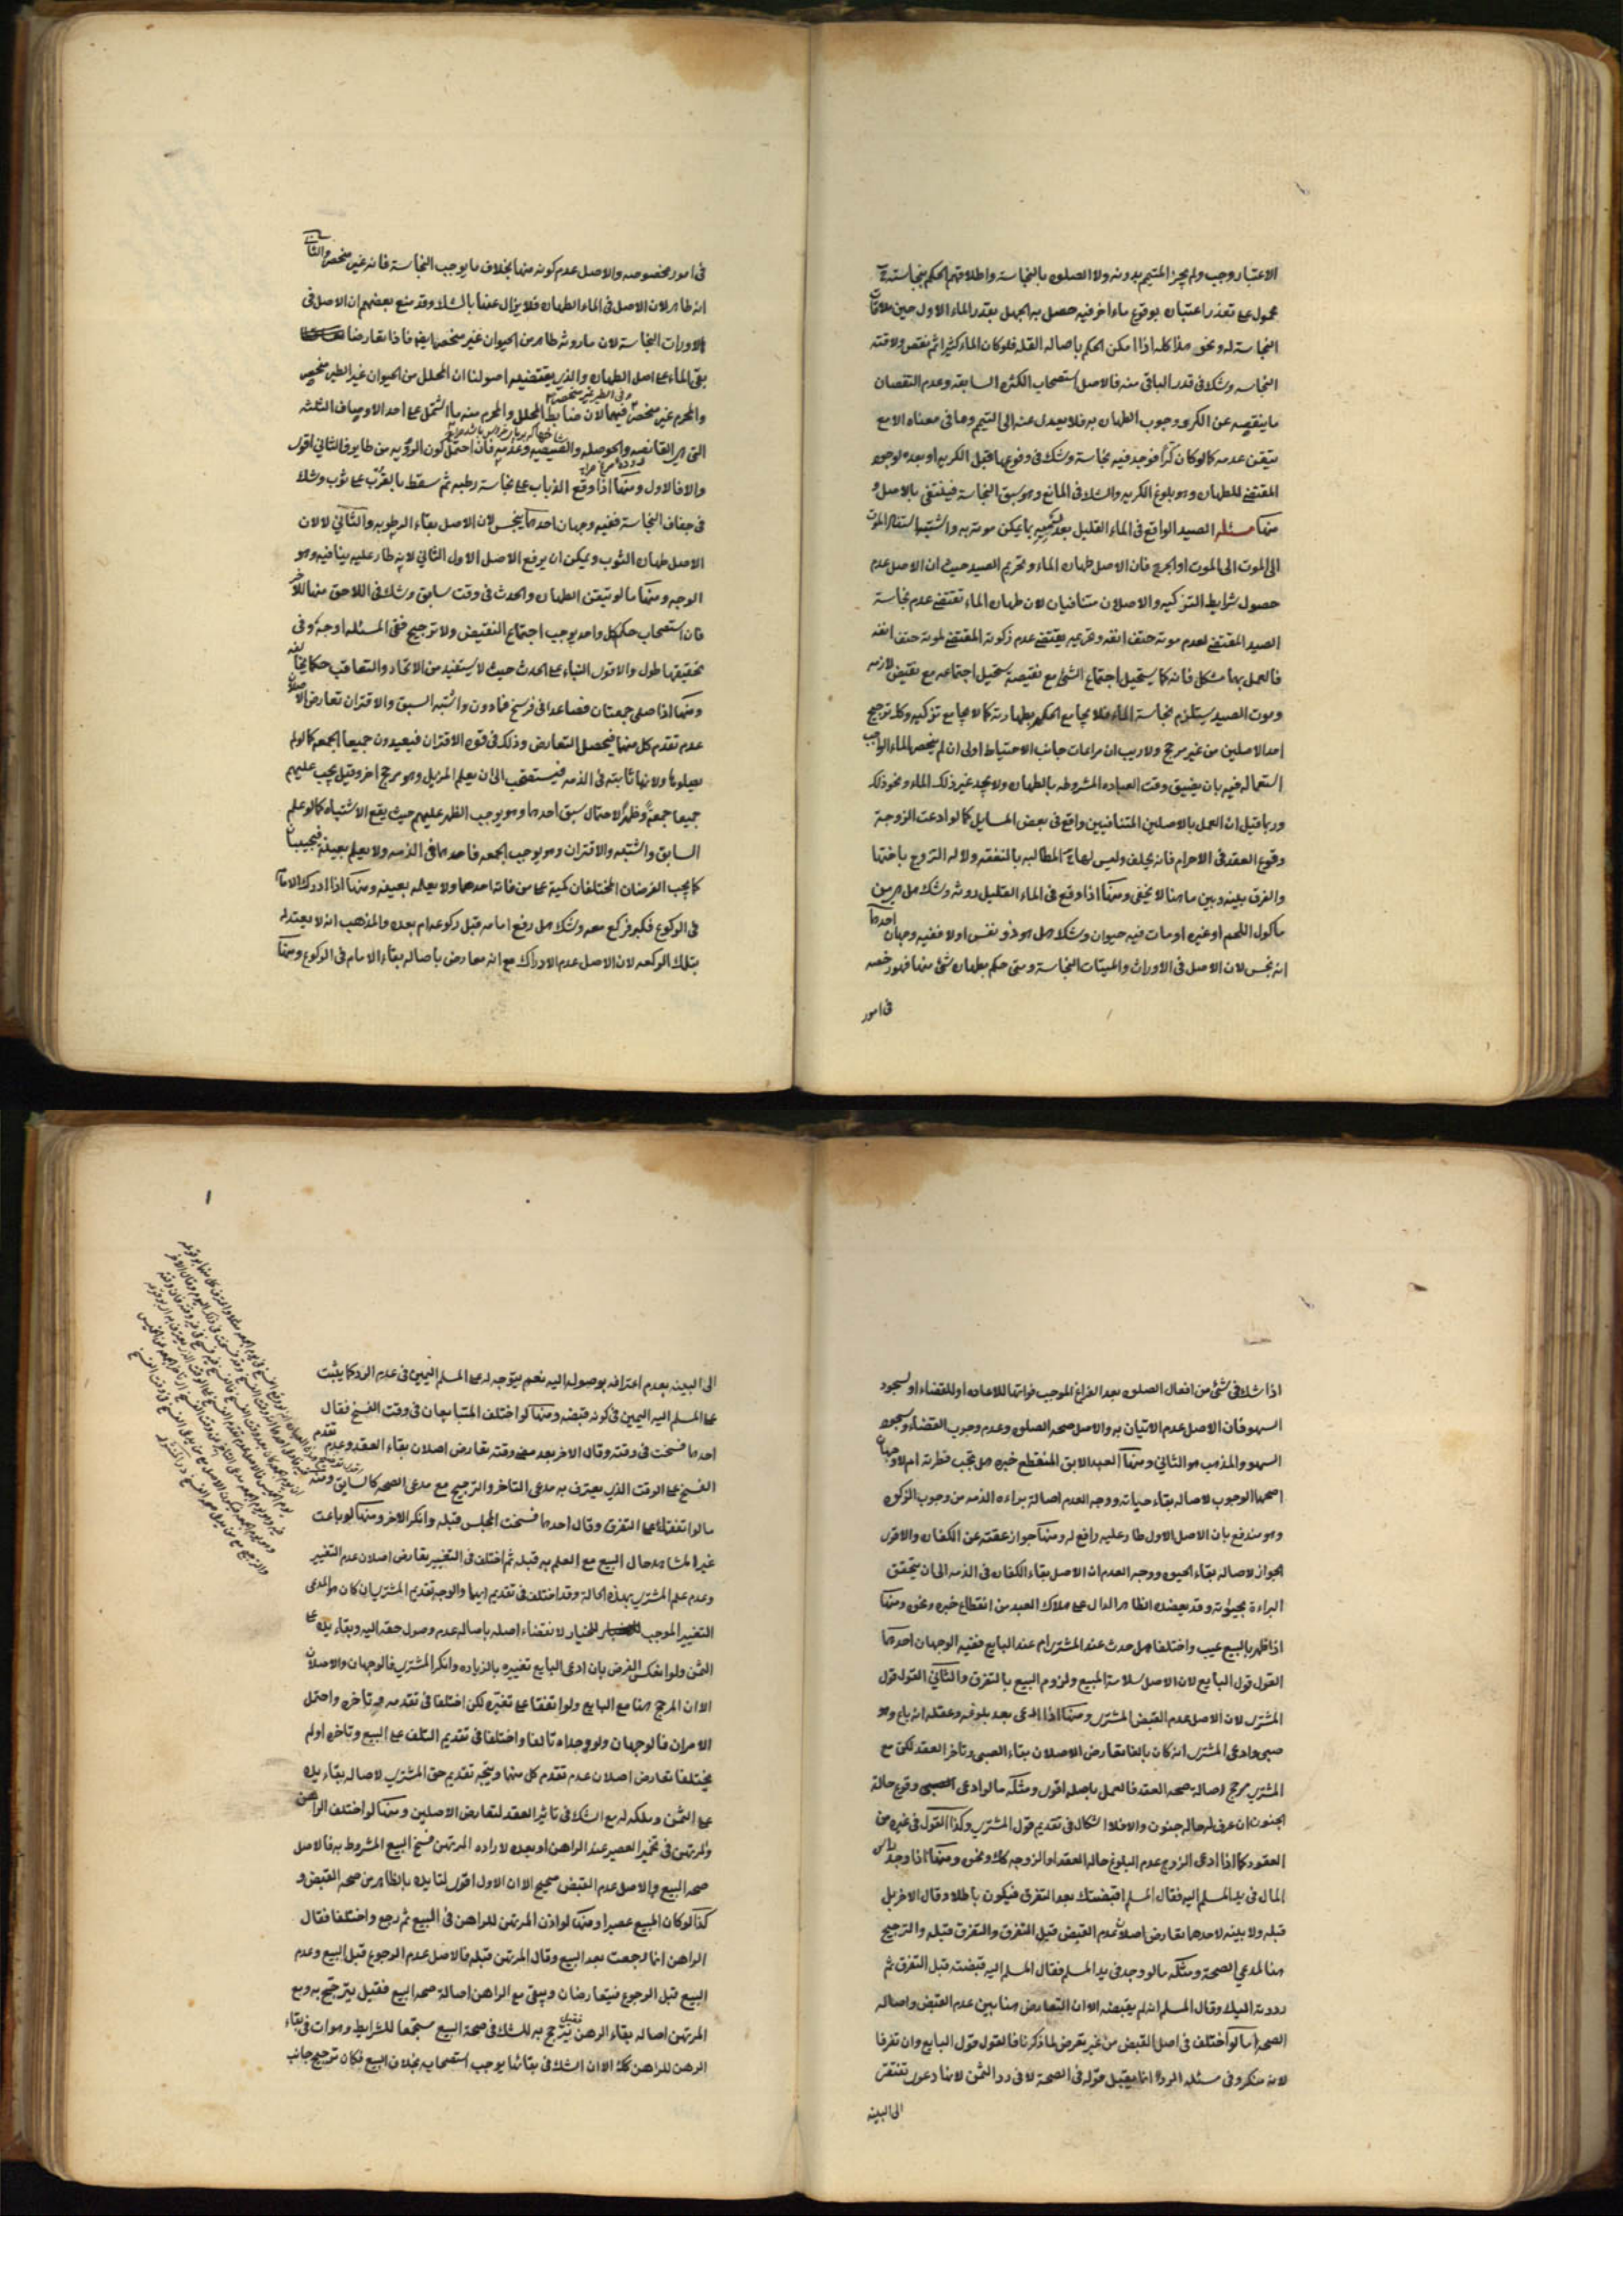 الاعتبار وجب ولم يجز المتيمم بدونه ولا الصلوة بالنجاسة واطلاقهم الحكم بنجاسته
محمول على تعذر اعتباره بوقوع ماء اخر فيه حصل به الجهل بقدر الماء الاول حين ملاقات
النجاسة له ونحوه هذا كله اذا امكن الحكم باصالة القلة فلو كان الماء كثيرا ثم نقص ولاقته
النجاسة وشك في قدر الباقي منه فالاصل استصحاب الكثرة السابقة وعدم النقصان
ما ينقصه عن الكر ووجوب الطهارة به فلا يعدل عنه الى التيمم وما في معناه الا مع
تيقن عدمه كما لو كان كرا فوجد فيه نجاسة وشك في وقوعها قبل الكرية او بعدها لوجود
المقتضي للطهارة وهو بلوغ الكرية والشك في المانع وهو سبق النجاسة فينتفي بالاصل و
منها مسئله الصيد الواقع في الماء القليل بعد رميه بما يمكن موته به واشتبه استناد الموت
الى الموت او الجرح فان الاصل طهارة الماء وتحريم الصيد حيث ان الاصل عدم
حصول شرايط التزكيه والاصلان متنافيان لان طهارة الماء تقتضي عدم نجاسة
الصيد المقتضي لعدم موته حتف انفه وتحريمه يقتضي عدم ذكوته المقتضي لموته حتف انفه
فالعمل بهما مشكل فانه كما يستحيل اجتماع الشئ مع نقيضه يستحيل اجتماعه مع نقيض لازمه
وموت الصيد يستلزم نجاسة الماء فلا يجامع الحكم بطهارته كما لا يجامع تزكيه وكذا ترجيح
احد الاصلين من غير مرجح ولا ريب ان مراعات جانب الاحتياط اولى ان لم ينحصر الماء الواجب
استعماله فيه بان يضيق وقت العباده المشروطه بالطهارة ولا يجد غير ذلك الماء ونحو ذلك
وربما قيل ان العمل بالاصلين المتنافيين واقع في بعض المسايل كما لو ادعت الزوجة
وقوع العقد في الاحرام فانه يحلف وليس لها المطالبه بالنفقه ولا له التزوج باختها
والفرق بينه وبين ما هنا لا يخفى ومنها اذا وقع في الماء القليل روثه وشك هل هي من
ماكول اللحم او غيره او مات فيه حيوان وشك هل هو ذو نفس او لا ففيه وجهان احدهما
انه نجس لان الاصل في الاوراث والميتات النجاسة ومتى حكم بطهارة شئ منها فهو رخصه
في امور
في امور مخصوصه والاصل عدم كونه منها بخلاف ما يوجب النجاسة فانه غير منحصر والثاني
انه طاهر لان الاصل في الماء الطهارة فلا يزال عنها بالشك وقد منع بعضهم ان الاصل في
الاوراث النجاسة لان ما روثه طاهر من الحيوان غير منحصر ايضا فاذا تعارضا
بقي الماء على اصل الطهارة والذي يقتضيه اصولنا ان المحلل من الحيوان غير الطير منحصر
وفي الطير غير منحصر
والمحرم غير منحصر فيهما لان ضابط المحلل والمحرم منه ما اشتمل على احد الاوصاف الثلثه
التي هي القانصه والحوصله والصيصيه وعدمه فان احتمل كون الروثه من طاير فالثاني اقوى
والا فالاول ومنها اذا وقع الذباب على نجاسة رطبه ثم سقط بالقرب على ثوب وشك
في جفاف النجاسة ففيه وجهان احدهما ينجس لان الاصل بقاء الرطوبه والثاني لا لان
الاصل طهارة الثوب ويمكن ان يرفع الاصل الاول الثاني لانه طار عليه ينافيه وهو
الوجه ومنها ما لو تيقن الطهارة والحدث في وقت سابق وشك في اللاحق منهما للاخر
فان استصحاب حكم كل واحد يوجب اجتماع النقيض ولا ترجيح ففي المسئله اوجه وفي
تحقيقها طول والاقوى البناء على الحدث حيث لا يستفيد من الاتحاد والتعاقب حكما يخالفه
ومنها اذا صلى جمعتان فصاعدا في فرسخ فما دون واشتبه السبق والاقتران تعارض الاصلان
عدم تقدم كل منهما فيحصل التعارض وذلك في قوة الاقتران فيعيدون جميعا الجمعه كما لو لم
يصلوها ولانها ثابته في الذمه فيستصحب الى ان يعلم المزيل وهو مرجح اخر وقيل يجب عليهم
جميعا جمعة وظهرا لاحتمال سبق احدهما وهو يوجب الظهر عليهم حيث يقع الاشتباه كما لو علم
السابق واشتبه والاقتران وهو يوجب الجمعه فاحدهما في الذمه ولا يعلم بعينه فيجبان
كما يجب الفرضان المختلفان كمية على من فاته احدهما ولا يعلمه بعينه ومنها اذا ادرك الامام
في الركوع فكبر فركع معه وشك هل رفع امامه قبل ركوعه ام بعده والمذهب انه لا يعتد له
بتلك الركعه لان الاصل عدم الادراك مع انه معارض باصالة بقاء الامام في الركوع ومنها
اذا شك في شئ من افعال الصلوة بعد الفراغ الموجب فواتها للاعاده او للقضاء او لسجود
السهو فان الاصل عدم الاتيان به والاصل صحه الصلوة وعدم وجوب القضاء وسجود
السهو والمذهب هو الثاني ومنها العبد الابق المنقطع خبره هل تجب فطرته ام لا وجهان
اصحهما الوجوب لاصالة بقاء حياته ووجه العدم اصالة براءة الذمه من وجوب الزكوة
وهو مندفع بان الاصل الاول طار عليه رافع له ومنها جواز عتقه عن الكفارة والاقوى
الجواز لاصالة بقاء الحيوة ووجه العدم ان الاصل بقاء الكفارة في الذمه الى ان يتحقق
البراءة بحيوته وقد يعضده الظاهر الدال على هلاك العبد من انقطاع خبره ونحوه ومنها
اذا ظهر بالمبيع عيب واختلفا هل حدث عند المشتري ام عند البايع ففيه الوجهان احدهما
القول قول البايع لان الاصل سلامة المبيع ولزوم البيع بالتفرق والثاني القول قول
المشتري لان الاصل عدم القبض المشتري ومنها اذا ادعى بعد بلوغه وعقله انه باع وهو
صبي وادعى المشتري انه كان بالغا تعارض الاصلان بقاء الصبى وتاخر العقد لكن مع
المشتري مرجح اصالة صحه العقد فالعمل باصله اقوى ومثله ما لو ادعى وقوع حالة
الجنون ان عرف له حاله جنون والا فلا اشكال في تقديم قول المشتري وكذا القول في غيره من
العقود كما اذا ادعى الزوج عدم البلوغ حالة العقد او الزوجه كك ونحوه ومنها اذا وجد راس
المال في يد المسلم اليه فقال المسلم اقبضتك بعد التفرق فيكون باطلا وقال الاخر بل
قبله ولا بينه لاحدهما تعارض اصلان عدم القبض قبل التفرق والتفرق قبله والترجيح
هنا لمدعي الصحة ومثله ما لو وجد في يد المسلم فقال المسلم اليه قبضته قبل التفرق ثم
رددته اليك وقال المسلم انه لم يقبضه الا ان التعارض هنا بين عدم القبض واصالة
الصحه اما لو اختلف في اصل القبض من غير تعرض لما ذكرنا فالقول قول البايع وان تفرقا
لانه منكر وفي مسئله الرد انما يقبل قوله في الصحة لا في رد الثمن لانها دعوى تفتقر
الى البينه
الى البينه بعدم اعترافه بوصوله اليه نعم يتوجه له على المسلم اليمين في عدم الرد كما يثبت
على المسلم اليه اليمين في كونه قبضه ومنها لو اختلف المتبايعان في وقت الفسخ فقال
احدهما فسخت في وقته وقال الاخر بعد مضي وقته تعارض اصلان بقاء العقد وعدم تقدم
الفسخ على الوقت الذي يعترف به مدعي التاخر والترجيح مع مدعي الصحه كالسابق ومنه
ما لو اتفقا على التفرق وقال احدهما فسخت المجلس قبله وانكر الاخر ومنها لو باعت
غير المشاهد حال البيع مع العلم به قبله ثم اختلف في التغيير تعارض اصلان عدم التغيير
وعدم علم المشتري بهذه الحالة وقد اختلف في تقديم ايهما والوجه تقديم المشتري ان كان هو المدعي
التغيير الموجب للخيار لانقضاء اصله باصالة عدم وصول حقه اليه وبقاء يده على
الثمن ولو انعكس الفرض بان ادعى البايع تغييره بالزياده وانكر المشتري فالوجهان والاصلان
الا ان المرجح هنا مع البايع ولو اتفقا على تغيره لكن اختلفا في تقدمه وتاخره واحتمل
الامران فالوجهان ولو وجداه تالفا واختلفا في تقديم التلف على البيع وتاخره او لم
يختلفا تعارض اصلان عدم تقدم كل منهما ويتجه تقديم حق المشتري لاصالة بقاء يده
على الثمن وملكه له مع الشك في تاثير العقد لتعارض الاصلين ومنها لو اختلف الراهن
والمرتهن في تخمير العصير عند الراهن او بعده لارادة المرتهن فسخ البيع المشروط به فالاصل
صحه البيع والاصل عدم القبض صحيح الا ان الاول اقوى لتايده بالظاهر من صحه القبض و
كذا لو كان المبيع عصيرا ومنها لو اذن المرتهن للراهن في البيع ثم رجع واختلفا فقال
الراهن انما رجعت بعد البيع وقال المرتهن قبله فالاصل عدم الرجوع قبل البيع وعدم
البيع قبل الرجوع فيتعارضان ويبقى مع الراهن اصالة صحه البيع فقيل يترجح به ومع
المرتهن اصالة بقاء الرهن فقيل يترجح به للشك في صحة البيع مستجمعا للشرايط وهو ات في بقاء
الرهن للراهن كك الا ان الشك في بقائها يوجب استصحابه بخلاف البيع فكان ترجيح جانب